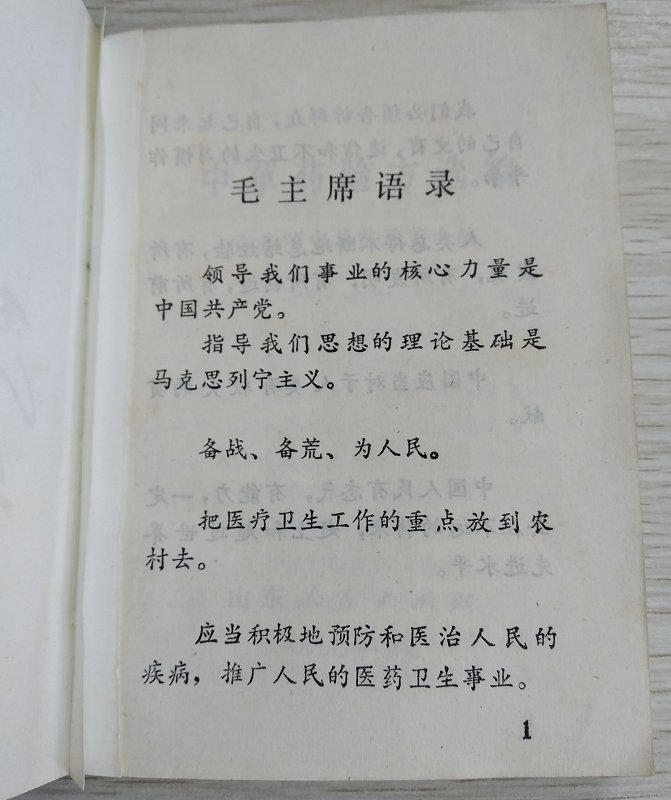 毛主席语录
领导我们事业的核心力量是
中国共产党。
指导我们思想的理论基础是
马克思列宁主义。
备战、备荒、为人民。
把医疗卫生工作的重点放到农
村去。
应当积极地预防和医治人民的
疾病，推广人民的医药卫生事业。
1